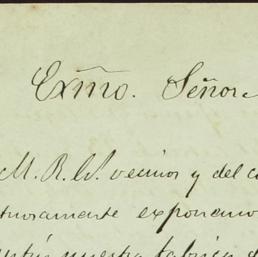 Exmo. Señor
M. R. W. vecinos y del c
tuosamente exponemos
nuestra fabrica d